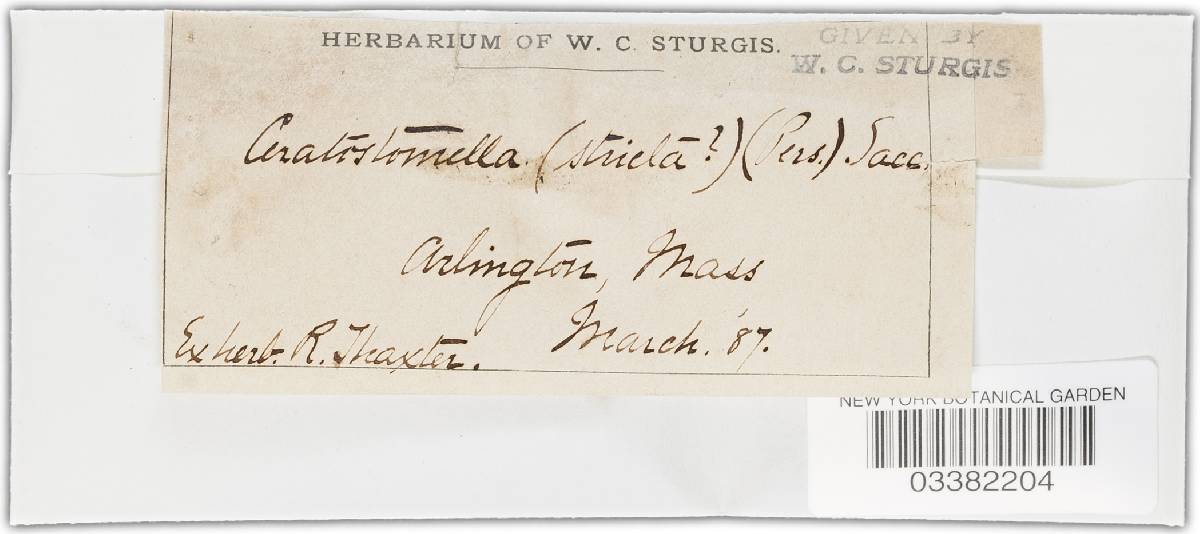 HERBARIUM OF W. C. STURGIS.
GIVEN BY
W. C. STURGIS
Ceratostomella (stricta?) (Pers.) Sacc.
Arlington, Mass
Ex herb. R. Thaxter. March. '87.
NEW YORK BOTANICAL GARDEN
03382204